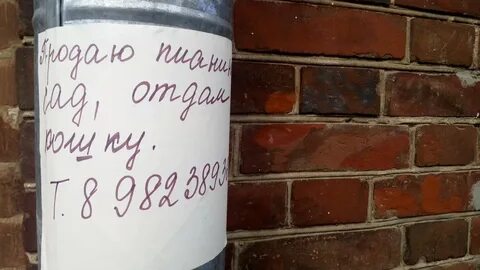 Продаю пиани
сад, отдам
рошку.
Т. 8 982 3893